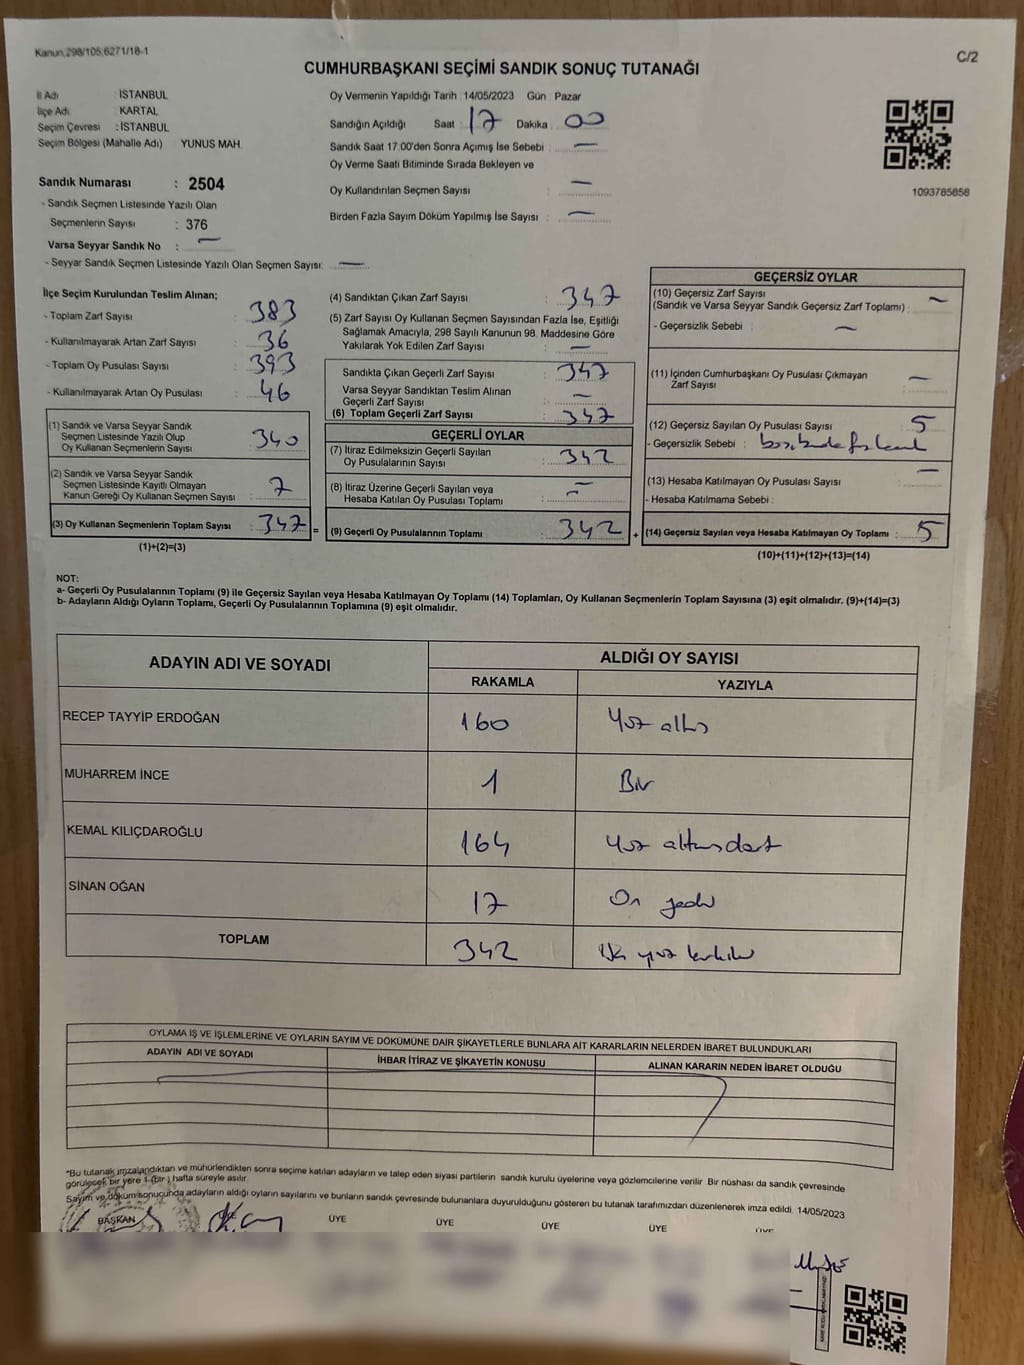 Kanun.298/105,6271/18-1
C/2
CUMHURBAŞKANI SEÇİMİ SANDIK SONUÇ TUTANAĞI
İl Adı : İSTANBUL
İlçe Adı : KARTAL
Seçim Çevresi : İSTANBUL
Seçim Bölgesi (Mahalle Adı) : YUNUS MAH.
Sandık Numarası : 2504
- Sandık Seçmen Listesinde Yazılı Olan
Seçmenlerin Sayısı : 376
Varsa Seyyar Sandık No : —
- Seyyar Sandık Seçmen Listesinde Yazılı Olan Seçmen Sayısı: —
Oy Vermenin Yapıldığı Tarih : 14/05/2023 Gün : Pazar
Sandığın Açıldığı Saat : 17 Dakika : 00
Sandık Saat 17:00'den Sonra Açımış İse Sebebi : —
Oy Verme Saati Bitiminde Sırada Bekleyen ve
Oy Kullandırılan Seçmen Sayısı : —
Birden Fazla Sayım Döküm Yapılmış İse Sayısı : —
1093785658
İlçe Seçim Kurulundan Teslim Alınan;
- Toplam Zarf Sayısı : 383
- Kullanılmayarak Artan Zarf Sayısı : 36
- Toplam Oy Pusulası Sayısı : 393
- Kullanılmayarak Artan Oy Pusulası : 46
(1) Sandık ve Varsa Seyyar Sandık
Seçmen Listesinde Yazılı Olup
Oy Kullanan Seçmenlerin Sayısı : 340
(2) Sandık ve Varsa Seyyar Sandık
Seçmen Listesinde Kayıtlı Olmayan
Kanun Gereği Oy Kullanan Seçmen Sayısı : 7
(3) Oy Kullanan Seçmenlerin Toplam Sayısı : 347 =
(1)+(2)=(3)
(4) Sandıktan Çıkan Zarf Sayısı : 347
(5) Zarf Sayısı Oy Kullanan Seçmen Sayısından Fazla İse, Eşitliği
Sağlamak Amacıyla, 298 Sayılı Kanunun 98. Maddesine Göre
Yakılarak Yok Edilen Zarf Sayısı : —
Sandıkta Çıkan Geçerli Zarf Sayısı : 347
Varsa Seyyar Sandıktan Teslim Alınan
Geçerli Zarf Sayısı : —
(6) Toplam Geçerli Zarf Sayısı : 347
GEÇERLİ OYLAR
(7) İtiraz Edilmeksizin Geçerli Sayılan
Oy Pusulalarının Sayısı : 342
(8) İtiraz Üzerine Geçerli Sayılan veya
Hesaba Katılan Oy Pusulası Toplamı : —
(9) Geçerli Oy Pusulalarının Toplamı : 342 +
GEÇERSİZ OYLAR
(10) Geçersiz Zarf Sayısı
(Sandık ve Varsa Seyyar Sandık Geçersiz Zarf Toplamı) : —
- Geçersizlik Sebebi : —
(11) İçinden Cumhurbaşkanı Oy Pusulası Çıkmayan
Zarf Sayısı : —
(12) Geçersiz Sayılan Oy Pusulası Sayısı : 5
- Geçersizlik Sebebi :
(13) Hesaba Katılmayan Oy Pusulası Sayısı : —
- Hesaba Katılmama Sebebi :
(14) Geçersiz Sayılan veya Hesaba Katılmayan Oy Toplamı : 5
(10)+(11)+(12)+(13)=(14)
NOT:
a- Geçerli Oy Pusulalarının Toplamı (9) ile Geçersiz Sayılan veya Hesaba Katılmayan Oy Toplamı (14) Toplamları, Oy Kullanan Seçmenlerin Toplam Sayısına (3) eşit olmalıdır. (9)+(14)=(3)
b- Adayların Aldığı Oyların Toplamı, Geçerli Oy Pusulalarının Toplamına (9) eşit olmalıdır.
ADAYIN ADI VE SOYADI ALDIĞI OY SAYISI
RAKAMLA YAZIYLA
RECEP TAYYİP ERDOĞAN 160 Yüz altmış
MUHARREM İNCE 1 Bir
KEMAL KILIÇDAROĞLU 164 Yüz altmışdört
SİNAN OĞAN 17 On yedi
TOPLAM 342
OYLAMA İŞ VE İŞLEMLERİNE VE OYLARIN SAYIM VE DÖKÜMÜNE DAİR ŞİKAYETLERLE BUNLARA AİT KARARLARIN NELERDEN İBARET BULUNDUKLARI
ADAYIN ADI VE SOYADI İHBAR İTİRAZ VE ŞİKAYETİN KONUSU ALINAN KARARIN NEDEN İBARET OLDUĞU
*Bu tutanak imzalandıktan ve mühürlendikten sonra seçime katılan adayların ve talep eden siyasi partilerin sandık kurulu üyelerine veya gözlemcilerine verilir. Bir nüshası da sandık çevresinde
görülecek bir yere 1 (bir ) hafta süreyle asılır.
Sayım ve döküm sonucunda adayların aldığı oyların sayılarını ve bunların sandık çevresinde bulunanlara duyurulduğunu gösteren bu tutanak tarafımızdan düzenlenerek imza edildi. 14/05/2023
BAŞKAN ÜYE ÜYE ÜYE ÜYE ÜYE ÜYE